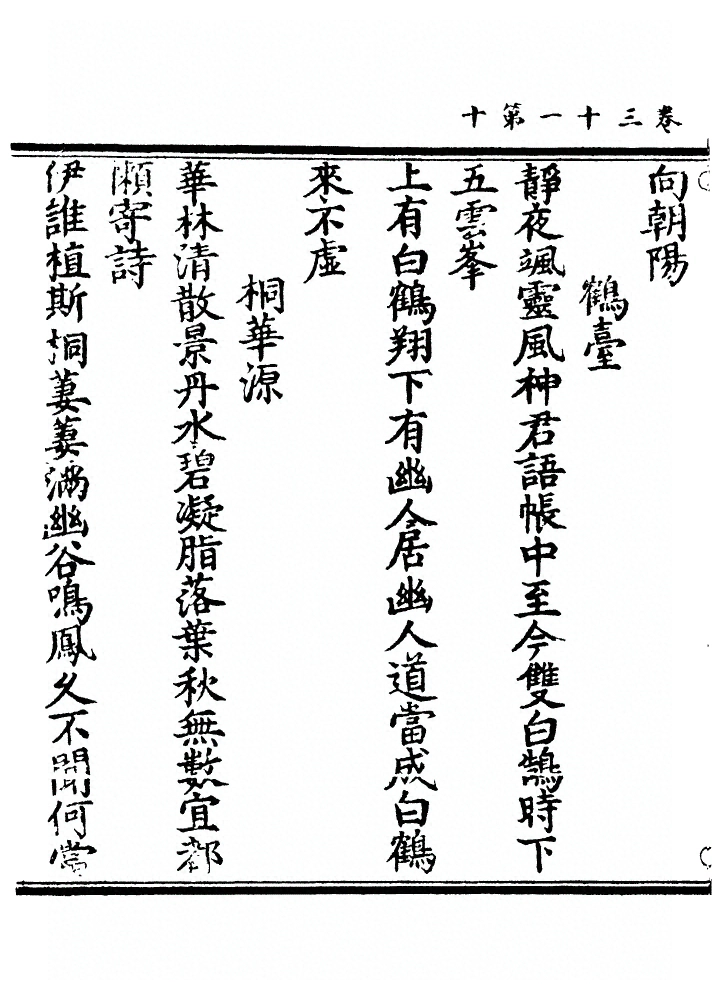 卷三十一第十
向朝陽
鶴臺
靜夜颯靈風神君語帳中至今雙白鵠時下
五雲峯
上有白鶴翔下有幽人居幽人道當成白鶴
來不虛
桐華源
華林清散景丹水碧凝脂落葉秋無數宜都
懶寄詩
伊誰植斯桐萋萋滿幽谷鳴鳳久不聞何當